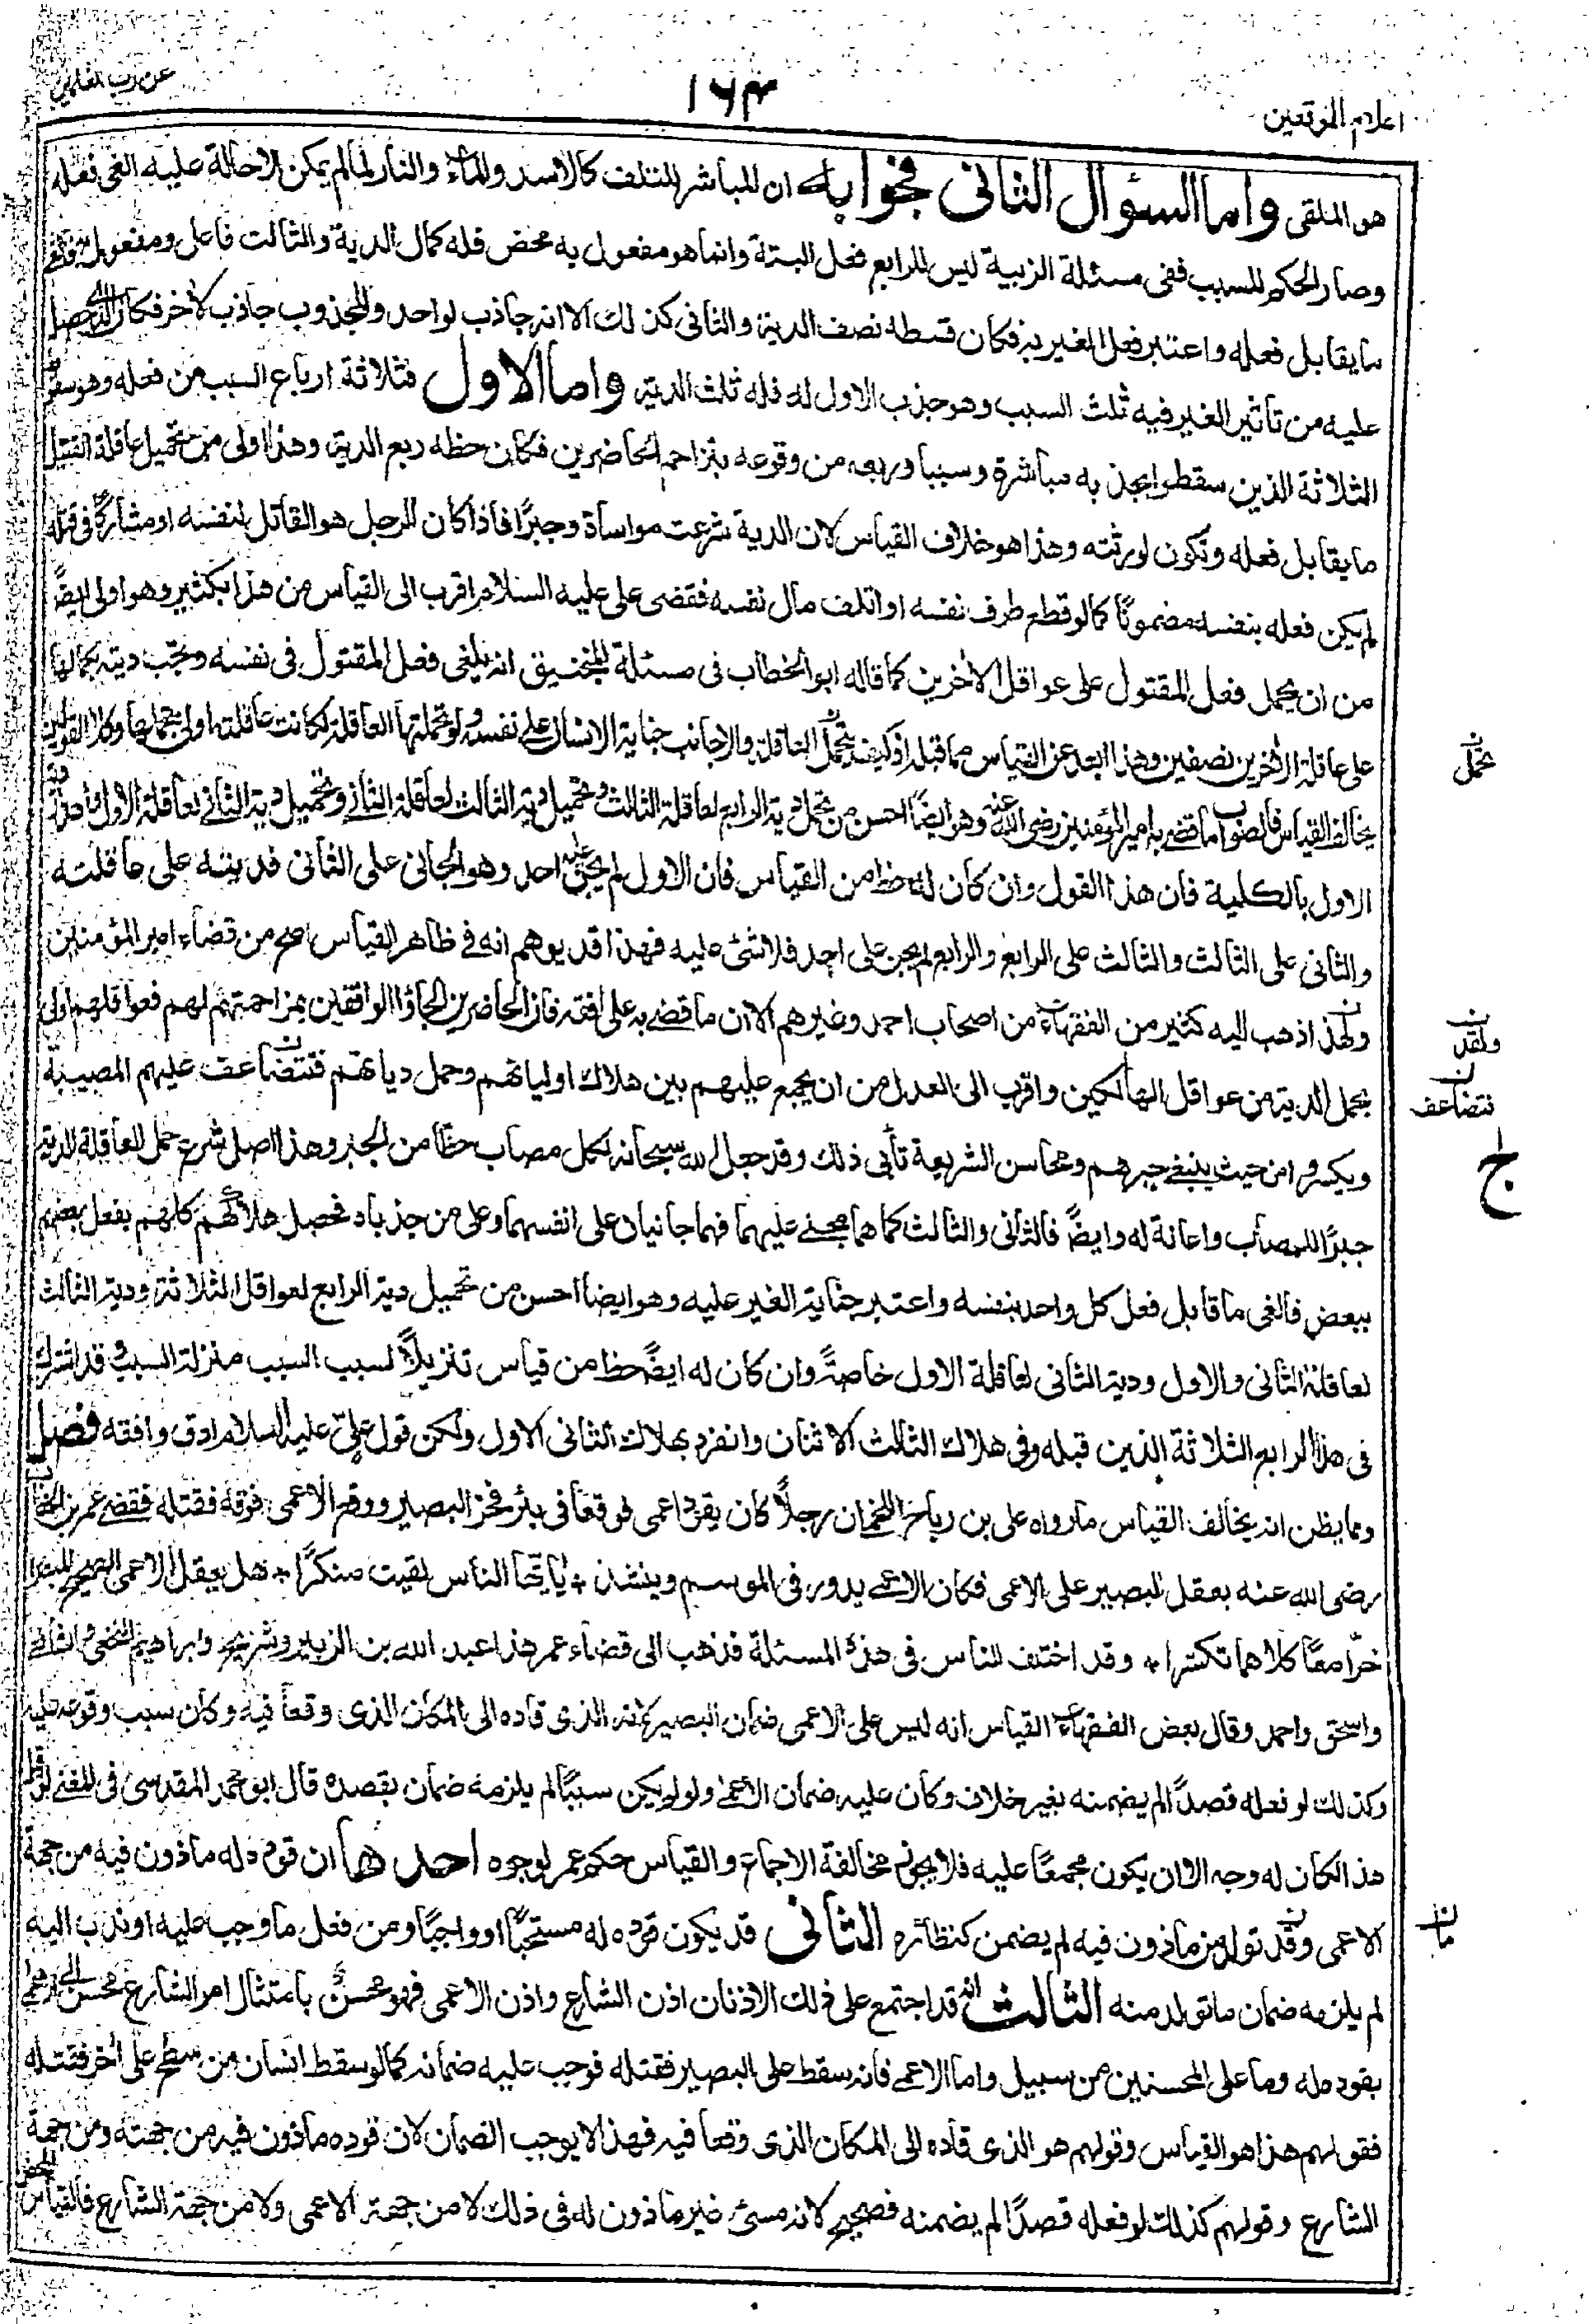 اعلام الموقعين
١٦٣
عن رب العلمين
هو الملقى واما السئوال الثانى فجوابه ان المباشر للتلف كالاسد والماء والنار لما لم يمكن الاحالة عليه الغى فعله
وصار الحكم للسبب ففى مسئلة الزبية ليس للرابع فعل البتة وانما هو مفعول به محض فله كمال الدية والثالث فاعل ومفعول به فالغى
ما يقابل فعله واعتبر فعل الغير به فكان قسطه نصف الدية والثانى كذلك الا انه جاذب لواحد والمجذوب جاذب لاخر فكان الذى حصل
عليه من تاثير الغير فيه ثلث السبب وهو جذب الاول له فله ثلث الدية واما الاول فثلاثة ارباع السبب من فعله وهو سقوط
الثلاثة الذين سقطوا بجذبه مباشرة وسببا وربعه من وقوعه بتزاحم الحاضرين فكان حظه ربع الدية وهذا اولى من تحميل عاقلة القتيل
ما يقابل فعله وتكون لورثته وهذا هو خلاف القياس لان الدية شرعت مواساة وجبرًا فاذا كان الرجل هو القاتل لنفسه او مشاركًا فى قتله
لم يكن فعله بنفسه مضمونًا كما لو قطع طرف نفسه او اتلف مال نفسه فقضى على عليه السلام اقرب الى القياس من هذا بكثير وهو اولى ايضًا
من ان يحمل فعل المقتول على عواقل الاخرين كما قاله ابو الخطاب فى مسئلة المنجنيق انه يلغى فعل المقتول فى نفسه وتجب ديته بكمالها
على عاقلة الاخرين نصفين وهذا ابعد عن القياس مما قبله اذ كيف يتحمل العاقلة والاجانب جناية الانسان على نفسه ولو تحملتها العاقلة لكانت عاقلته اولى بتحملها وكلا القولين
تحمل
يخالف القياس فالصواب ما قضى به امير المؤمنين رضى الله عنه وهو ايضًا احسن من تحمل دية الرابع لعاقلة الثالث وتحميل دية الثالث لعاقلة الثانى وتحميل دية الثانى لعاقلة الاول واهدار دية
الاول بالكلية فان هذا القول وان كان له حظ من القياس فان الاول لم يجن عليه احد وهو الجانى على الثانى فديته على عاقلته
والثانى على الثالث والثالث على الرابع والرابع لم يجن على احد فلا شئ عليه فهذا قد يوهم انه فى ظاهر القياس اصح من قضاء امير المؤمنين
ولهذا ذهب اليه كثير من الفقهاء من اصحاب احمد وغيرهم الا ان ما قضى به على افقه فان الحاضرين الجاؤا الواقفين بمزاحمتهم لهم فعواقلهم اولى
ولقد
بحمل الدية من عواقل الهالكين واقرب الى العدل من ان يجمع عليهم بين هلاك اوليائهم وحمل دياتهم فتتضاعف عليهم المصيبة
تتضاعف
ويكسروا من حيث ينبغى جبرهم ومحاسن الشريعة تأبى ذلك وقد جعل الله سبحانه لكل مصاب حظًا من الجبر وهذا اصل شرع حمل العاقلة الدية
جبرًا للمصاب واعانة له وايضًا فالثانى والثالث كما هما مجنى عليهما فهما جانيان على انفسهما وعلى من جذباه فحصل هلاكهم كلهم بفعل بعضهم
ببعض فالغى ما قابل فعل كل واحد بنفسه واعتبر جناية الغير عليه وهو ايضا احسن من تحميل دية الرابع لعواقل الثلاثة ودية الثالث
لعاقلة الثانى والاول ودية الثانى لعاقلة الاول خاصة وان كان له ايضًا حظ من قياس تنزيلًا لسبب السبب منزلة السبب وقد اشترك
فى هلاك الرابع الثلاثة الذين قبله وفى هلاك الثالث الاثنان وانفرد بهلاك الثانى الاول ولكن قول علىّ عليه السلام ادق وافقه فصل
ومما يظن انه يخالف القياس ما رواه على بن رباح اللخمى ان رجلًا كان يقود اعمى فوقعا فى بئر فخر البصير ووقع الاعمى فوقه فقتله فقضى عمر بن الخطاب
رضى الله عنه بعقل البصير على الاعمى فكان الاعمى يدور فى الموسم وينشد * يا ايها الناس لقيت منكرًا * هل يعقل الاعمى الصحيح المبصرا
خرّا معًا كلاهما تكسرا * وقد اختلف الناس فى هذه المسئلة فذهب الى قضاء عمر هذا عبد الله بن الزبير وشريح وابراهيم النخعى والشافعى
واسحق واحمد وقال بعض الفقهاء القياس انه ليس على الاعمى ضمان البصير لانه الذى قاده الى المكان الذى وقعا فيه وكان سبب وقوعه عليه
وكذلك لو فعله قصدًا لم يضمنه بغير خلاف وكان عليه ضمان الاعمى ولو لم يكن سببًا لم يلزمه ضمان بقصده قال ابو محمد المقدسى فى المغنى لو قيل
هذا لكان له وجه الا ان يكون مجمعًا عليه فلا يجوز مخالفة الاجماع والقياس حكم عمر لوجوه احدها ان قوده له ماذون فيه من جهة
الاعمى وقد تولد من ماذون فيه لم يضمن كنظائره الثانى قد يكون قوده له مستحبًا او واجبًا ومن فعل ما وجب عليه او ندب اليه
ما
لم يلزمه ضمان ما تولد منه الثالث انه قد اجتمع على ذلك الاذنان اذن الشارع واذن الاعمى فهو محسن بامتثال امر الشارع محسن الى الاعمى
بقوده له وما على المحسنين من سبيل واما الاعمى فانه سقط على البصير فقتله فوجب عليه ضمانه كما لو سقط انسان من سطح على اخر فقتله
فقولهم هذا هو القياس وقولهم هو الذى قاده الى المكان الذى وقعا فيه فهذا لا يوجب الضمان لان قوده ماذون فيه من جهته ومن جهة
الشارع وقولهم كذلك لو فعله قصدًا لم يضمنه فصحيح لانه مسئ غير ماذون له فى ذلك لا من جهة الاعمى ولا من جهة الشارع فالقياس المحض